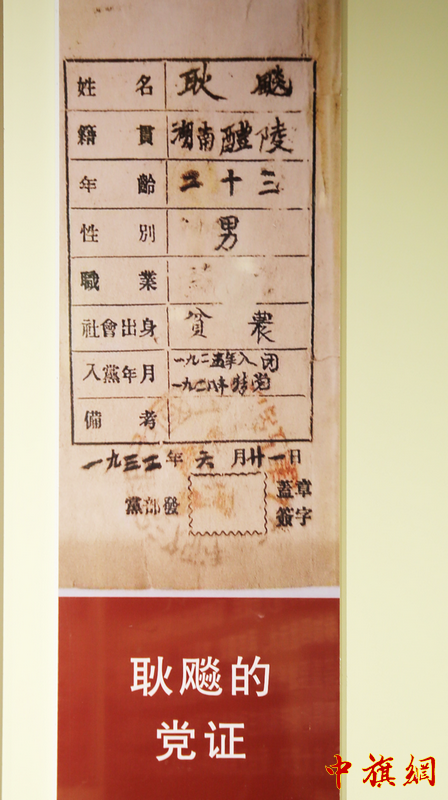 姓名 耿飈
籍貫 湖南醴陵
年齡 二十三
性別 男
職業
社會出身 貧農
入黨年月 一九二五年入团
一九二八年转党
備考
一九三二年六月廿一日
黨部發
蓋章
簽字
耿飚的
党证
中旗網